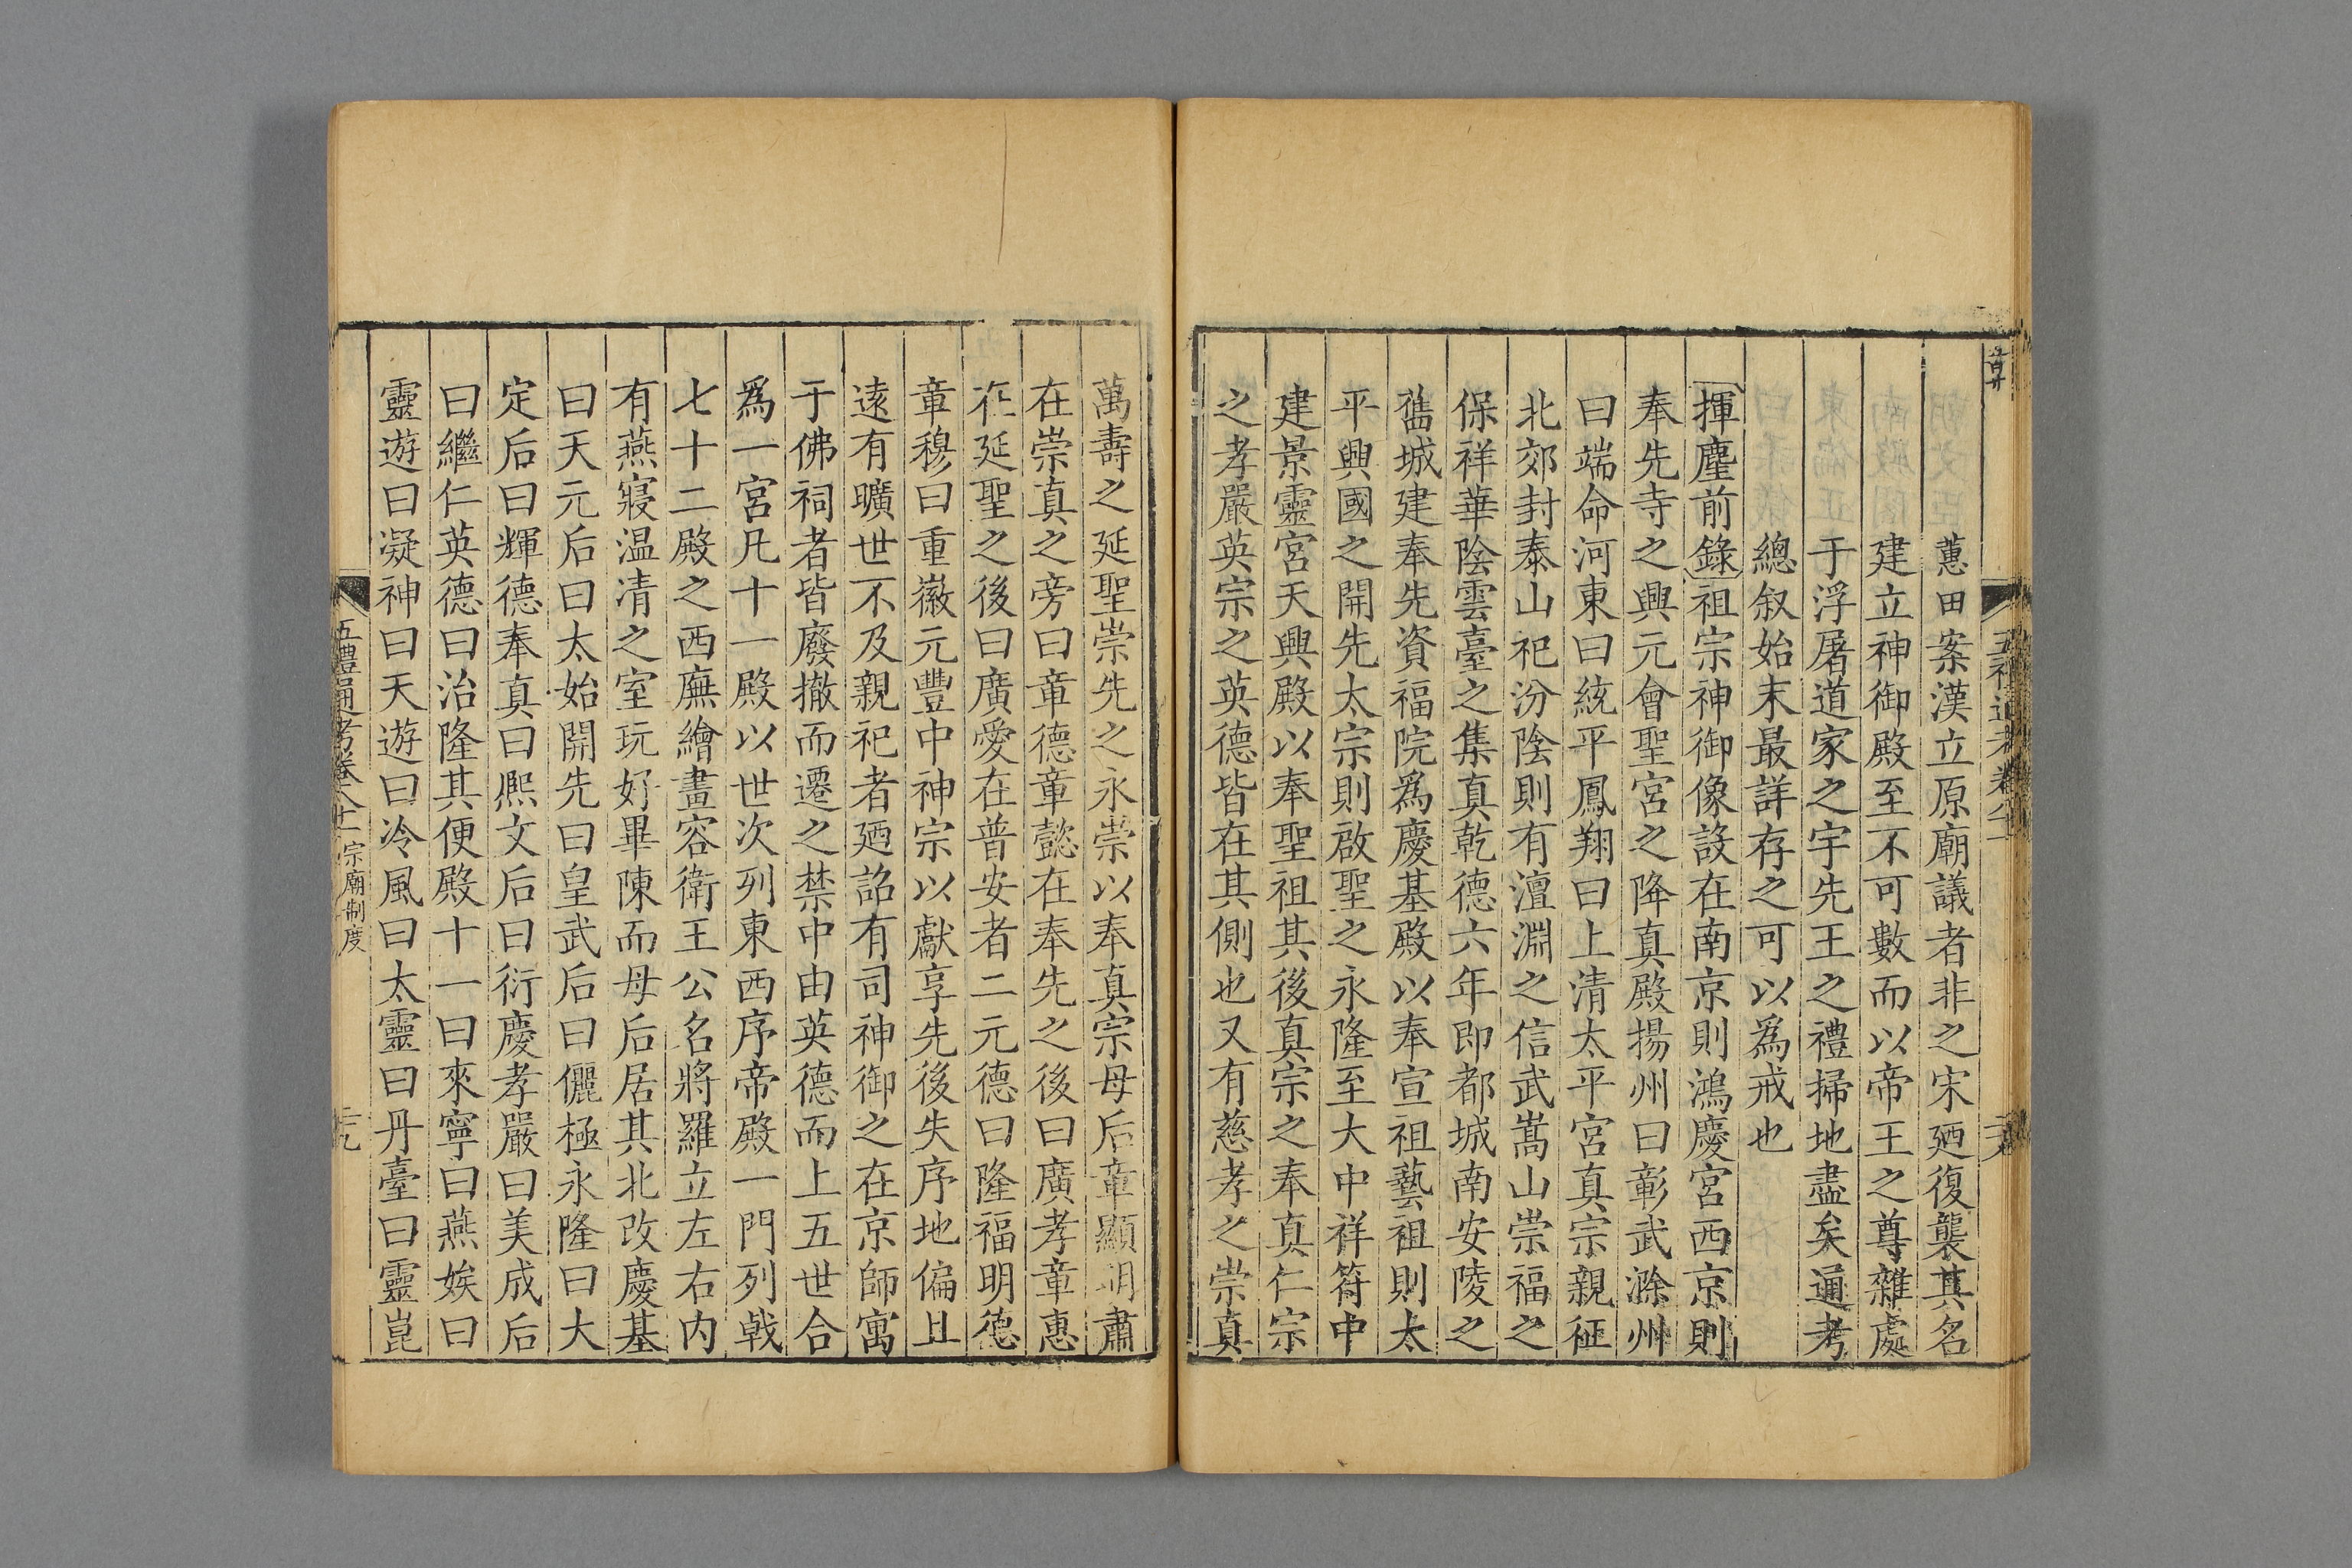 蕙田案漢立原廟議者非之宋廼復襲其名
建立神御殿至不可數而以帝王之尊雜處
于浮屠道家之宇先王之禮掃地盡矣通考
總叙始末最詳存之可以爲戒也
揮麈前錄祖宗神御像設在南京則鴻慶宮西京則
奉先寺之興元會聖宮之降真殿揚州曰彰武滁州
曰端命河東曰統平鳳翔曰上清太平宮真宗親征
北郊封泰山祀汾陰則有澶淵之信武嵩山崇福之
保祥華陰雲臺之集真乾德六年即都城南安陵之
舊城建奉先資福院爲慶基殿以奉宣祖藝祖則太
平興國之開先太宗則啟聖之永隆至大中祥符中
建景靈宮天興殿以奉聖祖其後真宗之奉真仁宗
之孝嚴英宗之英德皆在其側也又有慈孝之崇真
萬壽之延聖崇先之永崇以奉真宗母后章顯明肅
在崇真之旁曰章德章懿在奉先之後曰廣孝章惠
在延聖之後曰廣愛在普安者二元德曰隆福明德
章穆曰重徽元豐中神宗以獻享先後失序地偏且
遠有曠世不及親祀者廼詔有司神御之在京師寓
于佛祠者皆廢撤而遷之禁中由英德而上五世合
爲一宮凡十一殿以世次列東西序帝殿一門列戟
七十二殿之西廡繪畫容衛王公名將羅立左右内
有燕寢温清之室玩好畢陳而母后居其北改慶基
曰天元后曰太始開先曰皇武后曰儷極永隆曰大
定后曰輝德奉真曰熈文后曰衍慶孝嚴曰美成后
曰繼仁英德曰治隆其便殿十一曰來寧曰燕娭曰
靈遊曰凝神曰天遊曰泠風曰太靈曰丹臺曰靈崑
五禮通考卷八十二 宗廟制度